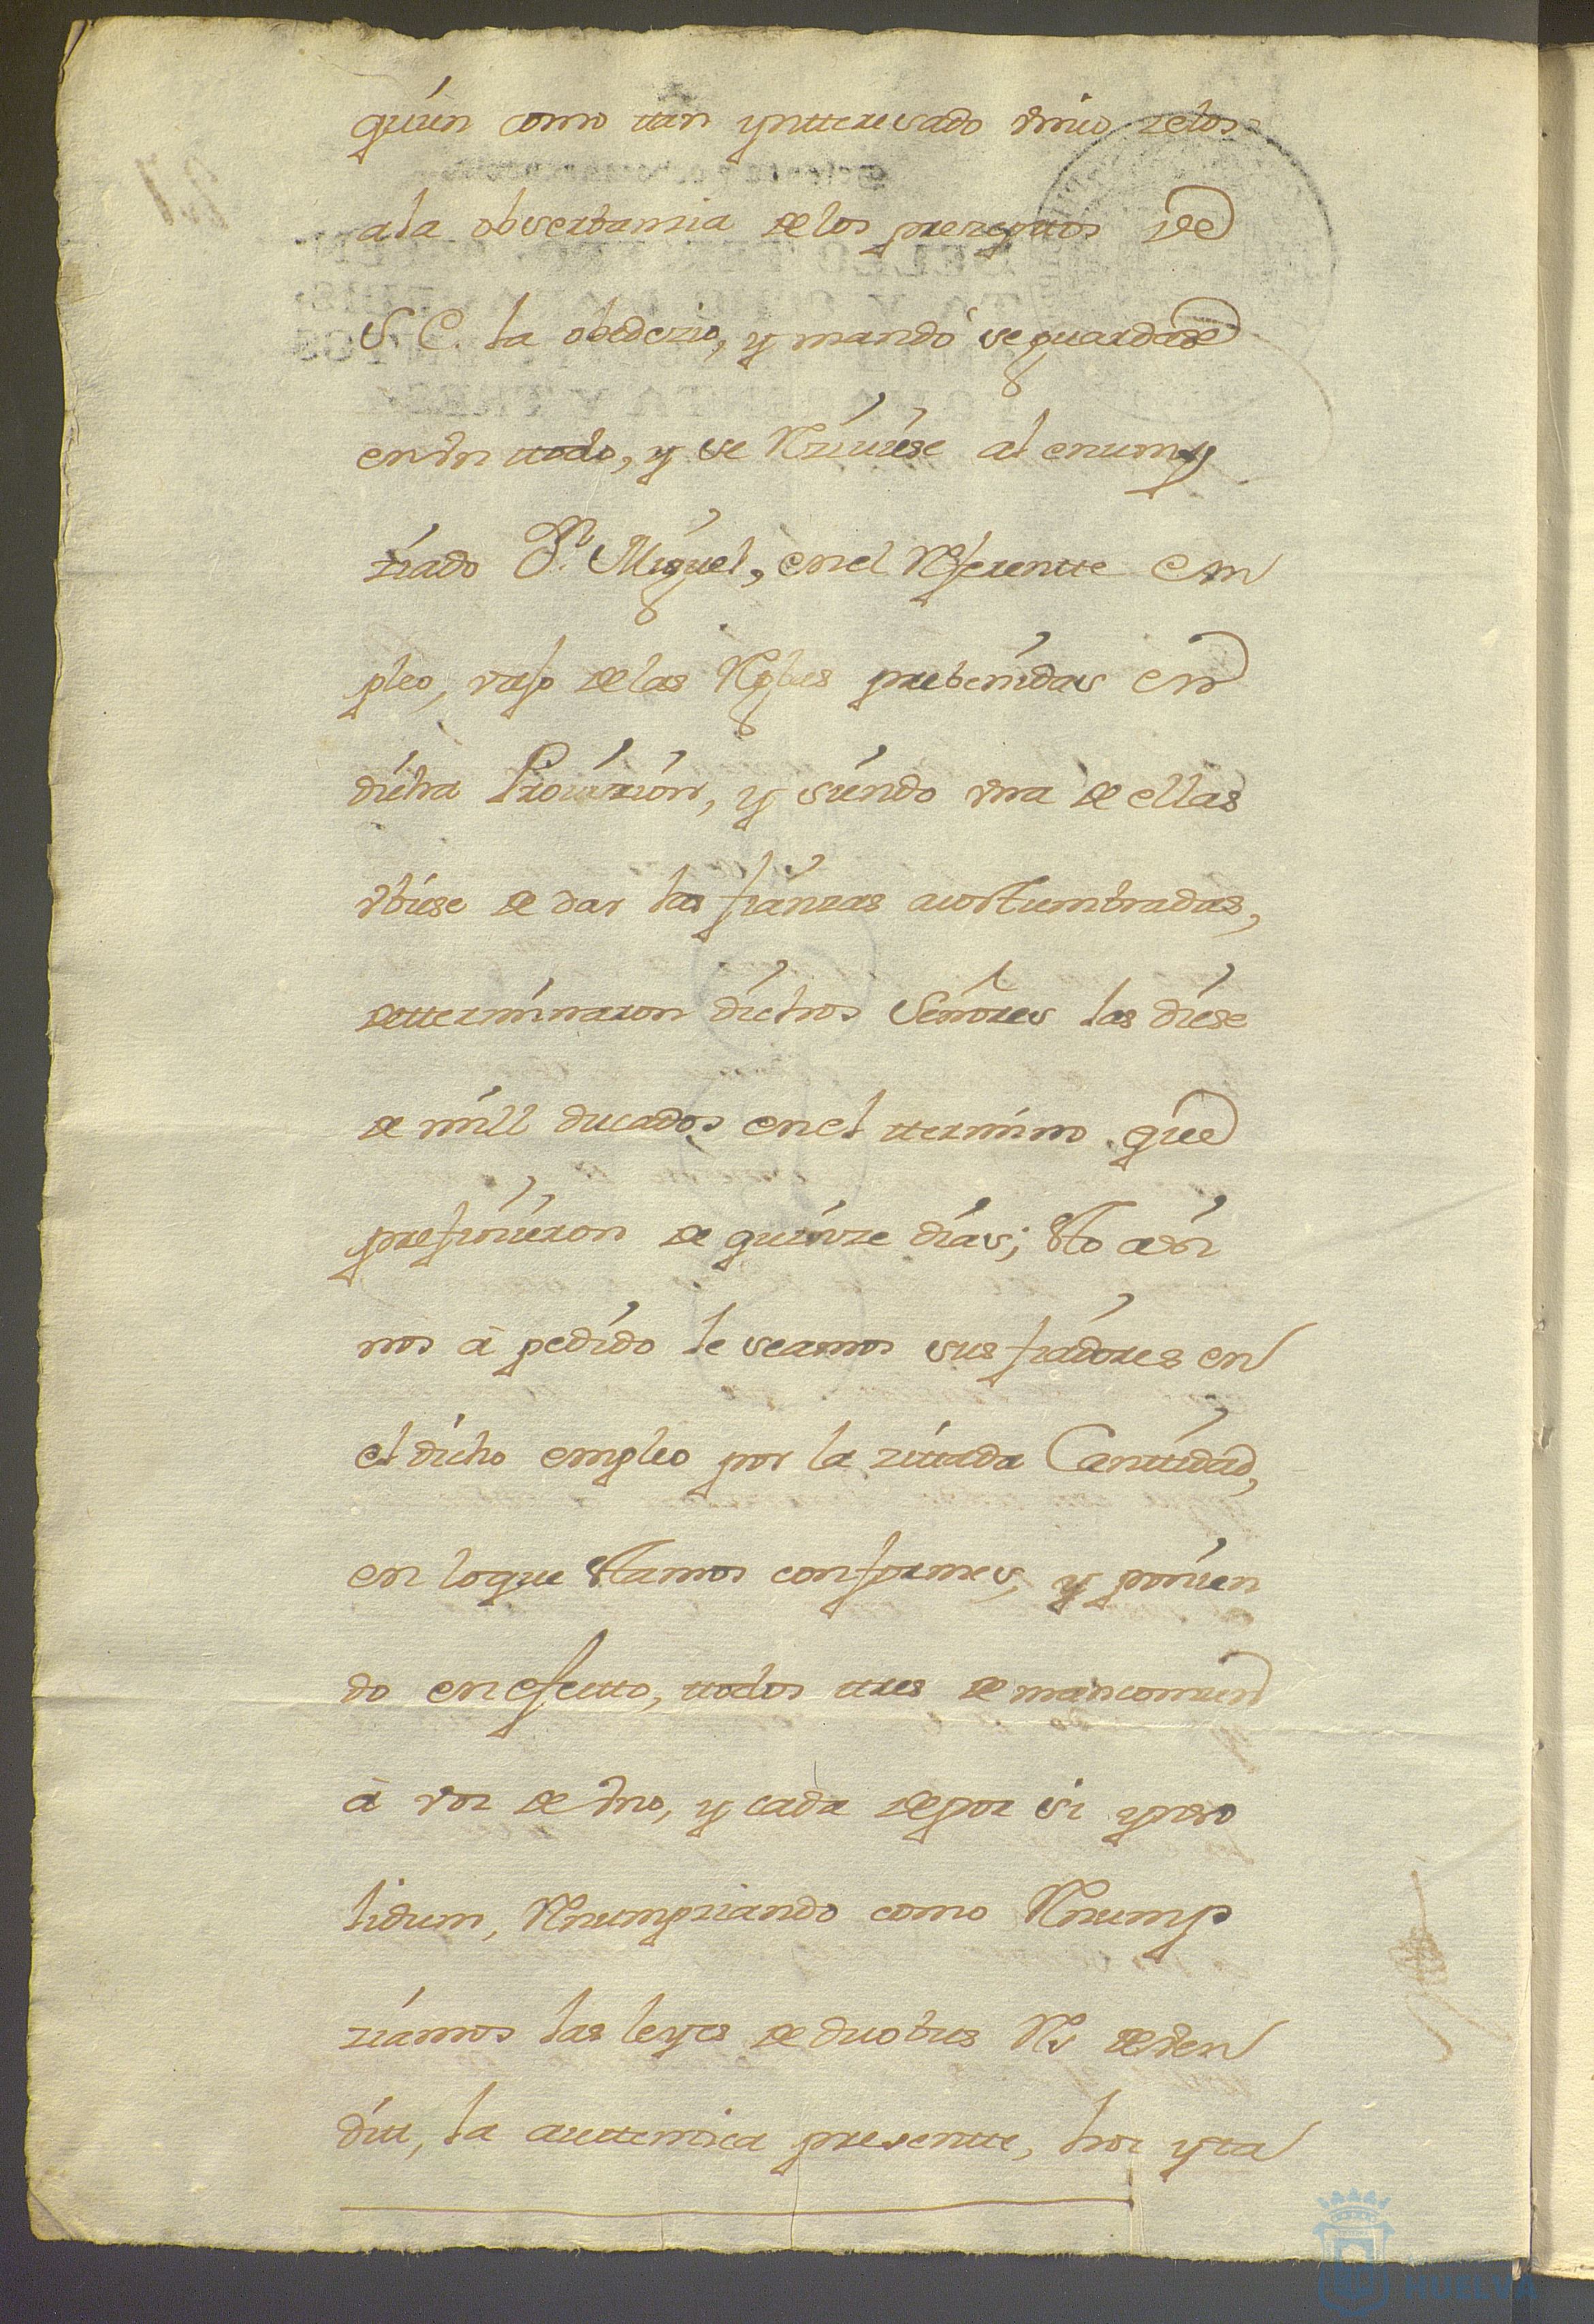 quien como tan yntteresado vnico zelos
a la obserbancia de los prezeptos de
S. E. la obedezio, y mandó se guardase
en vn ttodo, y se Reziuiese al enunp
ziado Dn. Miguel, en el Referentte em
pleo, vajo de las Reglas prebenidas en
dicha Prouizion, y siendo vna de ellas
vbiese de dar las fianzas acostumbradas,
detterminaron dichos Señores las diese
de mill ducados en el ttermino que
prefinieron de quinze dias; Pto aen
nos à pedido le seamos sus fiadores en
el dicho empleo por la zittada Canttidad,
en lo que Stamos conformes, y ponien
do en efectto, ttodos ttres de mancomun
à voz de vno, y cada de por si ynso
lidum, Renumpziando como Renump
ziamos las leyes de duobus Rs deven
di, la auttentica presentte, hoc yta
HUELVA